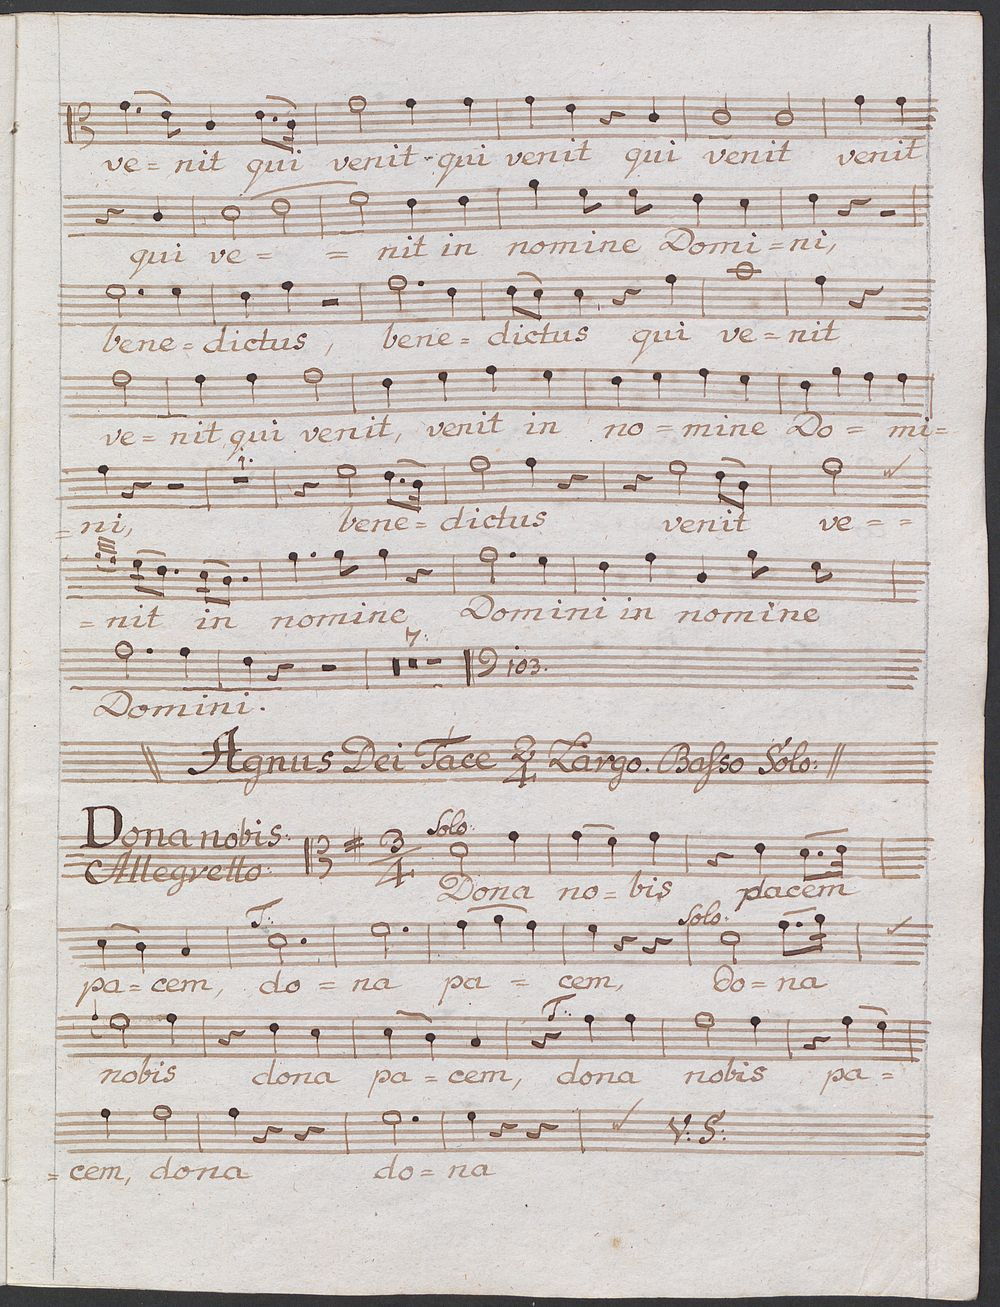 ve=nit qui venit qui venit qui venit venit
qui ve= = nit in nomine Domi=ni,
bene=dictus, bene=dictus qui ve=nit
ve=nit qui venit, venit in no=mine Do=mi=
1.
=ni, bene=dictus venit ve= =
=nit in nomine Domini in nomine
7. 103.
Domini.
Agnus Dei Tace 2/4 Largo. Basso Solo:
Dona nobis. Solo:
Allegretto. 3/4
Dona no=bis pacem
T. Solo:
pa=cem, do=na pa=cem, Do=na
T.
nobis dona pa=cem, dona nobis pa=
V: S:
=cem, dona do=na